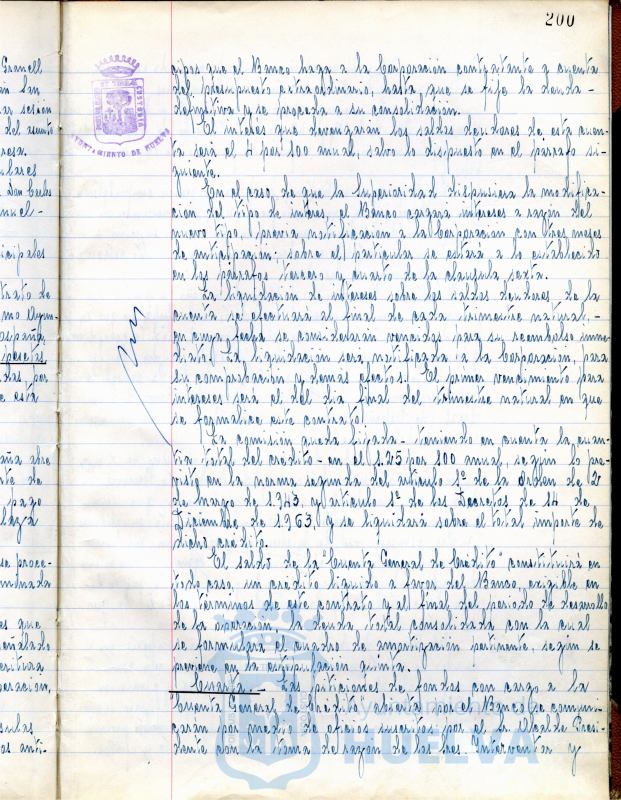 200
AYUNTAMIENTO DE HUELVA
Granell
San
sesión
del asunto
Don Carlos
nuel-
icipales
trato de
mo Ayun-
España,
pesetas
por
esta
aña abre
nte de
pago
se proce-
es que
eñalado
critura
oración,
sulas
os anti-
cipos que el Banco haga a la Corporación contratante y cuenta
del presupuesto extraordinario, hasta que se fije la deuda-
definitiva y se proceda a su consolidación.
El interés que devengarán los saldos deudores de esta cuen-
ta será el 4 por 100 anual, salvo lo dispuesto en el párrafo si-
guiente.
En el caso de que la Superioridad dispusiera la modifica-
ción del tipo de interés, el Banco cargará intereses a razón del
nuevo tipo, previa notificación a la Corporación con tres meses
de anticipación; sobre el particular se estará a lo establecido
en los párrafos tercero y cuarto de la cláusula sexta.
La liquidación de intereses sobre los saldos deudores de la
cuenta se efectuará al final de cada trimestre natural,-
en cuya fecha se considerarán vencidos para su reembolso inme-
diato. La liquidación será notificada a la Corporación, para
su comprobación y demás efectos. El primer vencimiento para
intereses será el del día final del trimestre natural en que
se formalice este contrato.
La comisión queda fijada- teniendo en cuenta la cuan-
tía total del crédito- en el 1.25 por 100 anual, según lo pre-
visto en la norma segunda del artículo 1º de la Orden de 21
de marzo de 1.943, y artículo 1º de los Decretos de 14 de
Diciembre de 1.963, y se liquidará sobre el total importe de
dicho crédito.
El saldo de la "Cuenta General de Crédito" constituirá en
todo caso, un crédito líquido a favor del Banco, exigible en
los términos de este contrato y al final del período de desarrollo
de la operación, la deuda total consolidada con la cual
se formulará el cuadro de amortización pertinente, según se
previene en la estipulación quinta.
Cuarta.- Las peticiones de fondos con cargo a la
"Cuenta General de Crédito" abierta por el Banco se comuni-
carán por medio de oficios suscritos por el Sr. Alcalde Presi-
dente con la toma de razón de los Sres. Interventor y
HUELVA